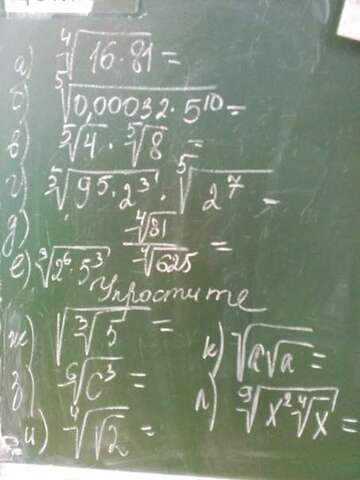 а) ⁴√16·81 =
б) ⁵√0,00032·5¹⁰ =
в) ⁵√4 · ⁵√8 =
г) ⁵√9⁵·2³ · ⁵√2⁷ =
д) ⁴√81 / ⁴√625 =
е) ³√2⁶·5³
Упростите
ж) √³√5 =
з) ⁶√c³ =
и) ⁴√√2 =
к) √a√a =
л) ⁹√x²⁴√x =